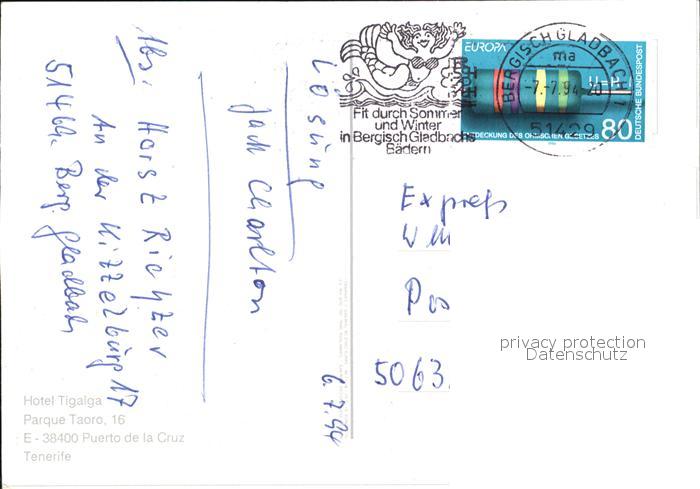 Abs: Horst Richter
An der Kittelburg 17
51469 Berg. Gladbach
Lösung
Jack Charlton
6.7.94
Hotel Tigaiga
Parque Taoro, 16
E - 38400 Puerto de la Cruz
Tenerife
Fit durch Sommer
und Winter
in Bergisch Gladbachs
Bädern
BERGISCH GLADBACH 1
ma
-7.-7.94-20
51429
EUROPA
DEUTSCHE BUNDESPOST
ENTDECKUNG DES OHMSCHEN GESETZES
80
Express
5063
privacy protection
Datenschutz